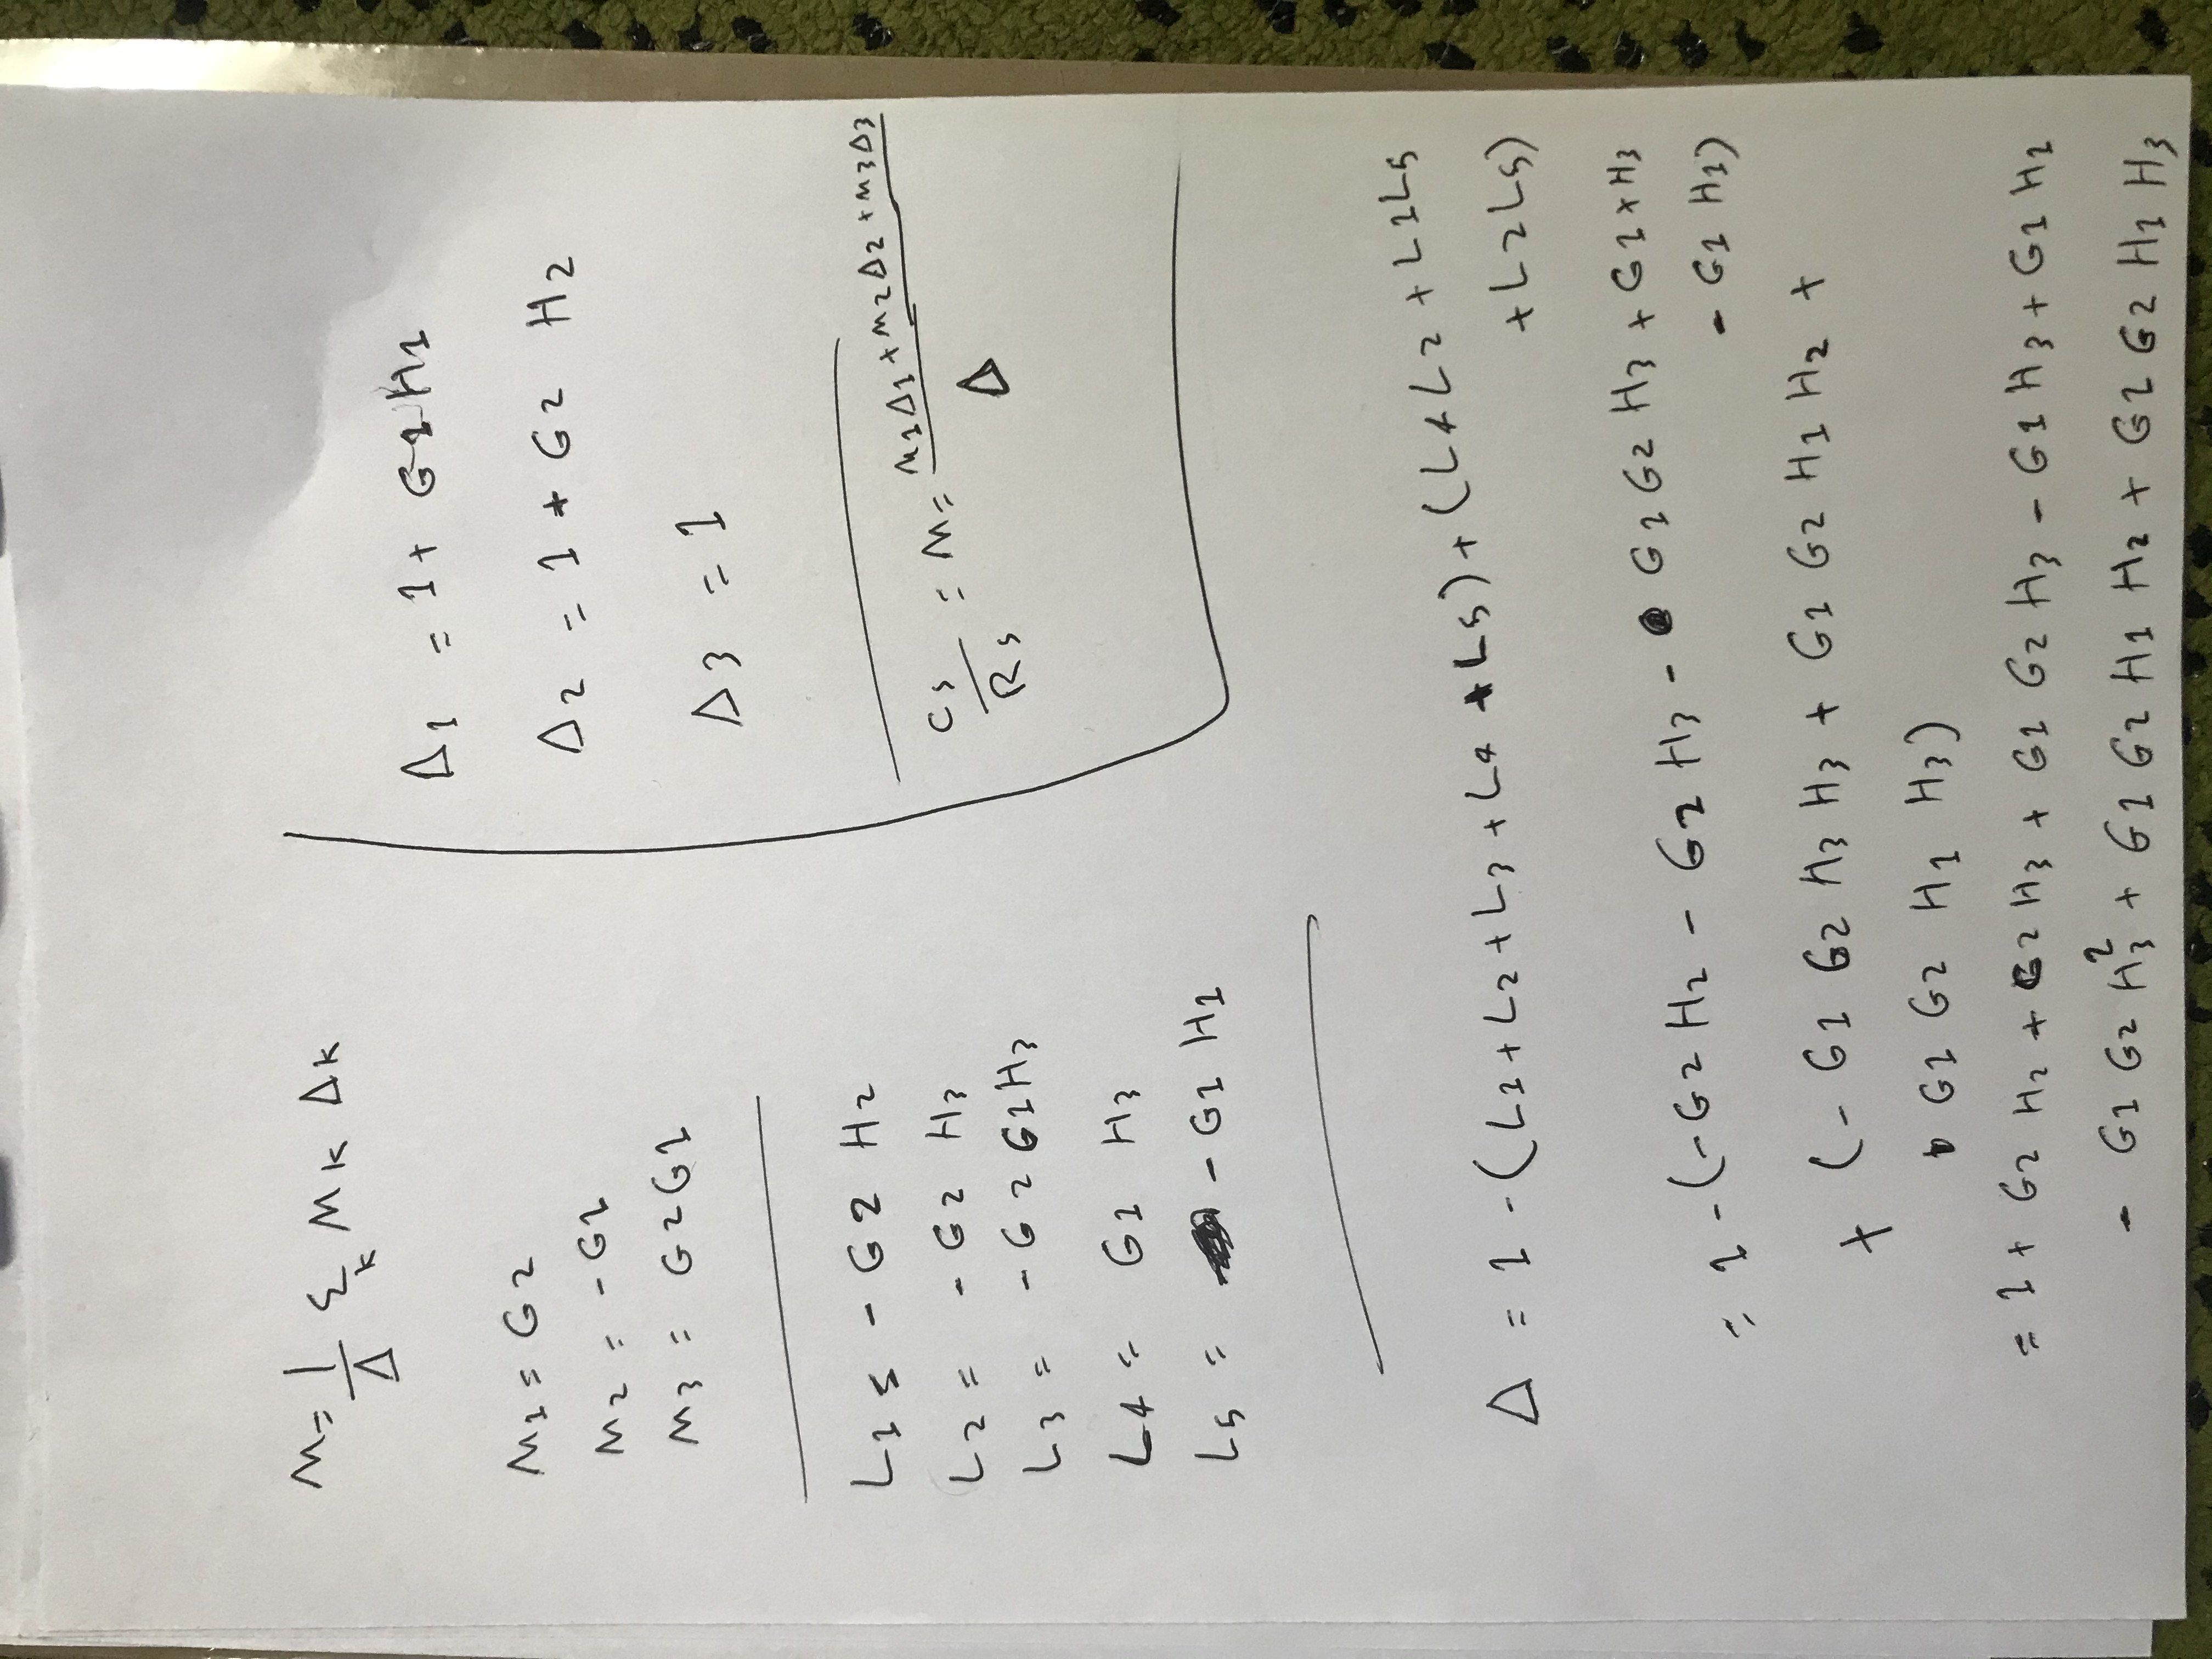 M = 1/Δ Σk Mk Δk
M1 = G2
M2 = -G1
M3 = G2G1
L1 = - G2 H2
L2 = - G2 H3
L3 = - G2 G1H3
L4 = G1 H3
L5 = - G1 H1
Δ1 = 1 + G1H1
Δ2 = 1 + G2 H2
Δ3 = 1
Cs/Rs = M = (M1Δ1 + M2Δ2 + M3Δ3)/Δ
Δ = 1 - (L1 + L2 + L3 + L4 + L5) + (L4L2 + L1L5
+ L2L5)
= 1 - (-G2 H2 - G2 H3 - G1 G2 H3 + G1 + H3
- G1 H1)
+ (- G1 G2 H3 H3 + G1 G2 H1 H2 +
G1 G2 H1 H3)
= 1 + G2 H2 + G2 H3 + G1 G2 H3 - G1 H3 + G1 H1
- G1 G2 H3² + G1 G2 H1 H2 + G1 G2 H1 H3